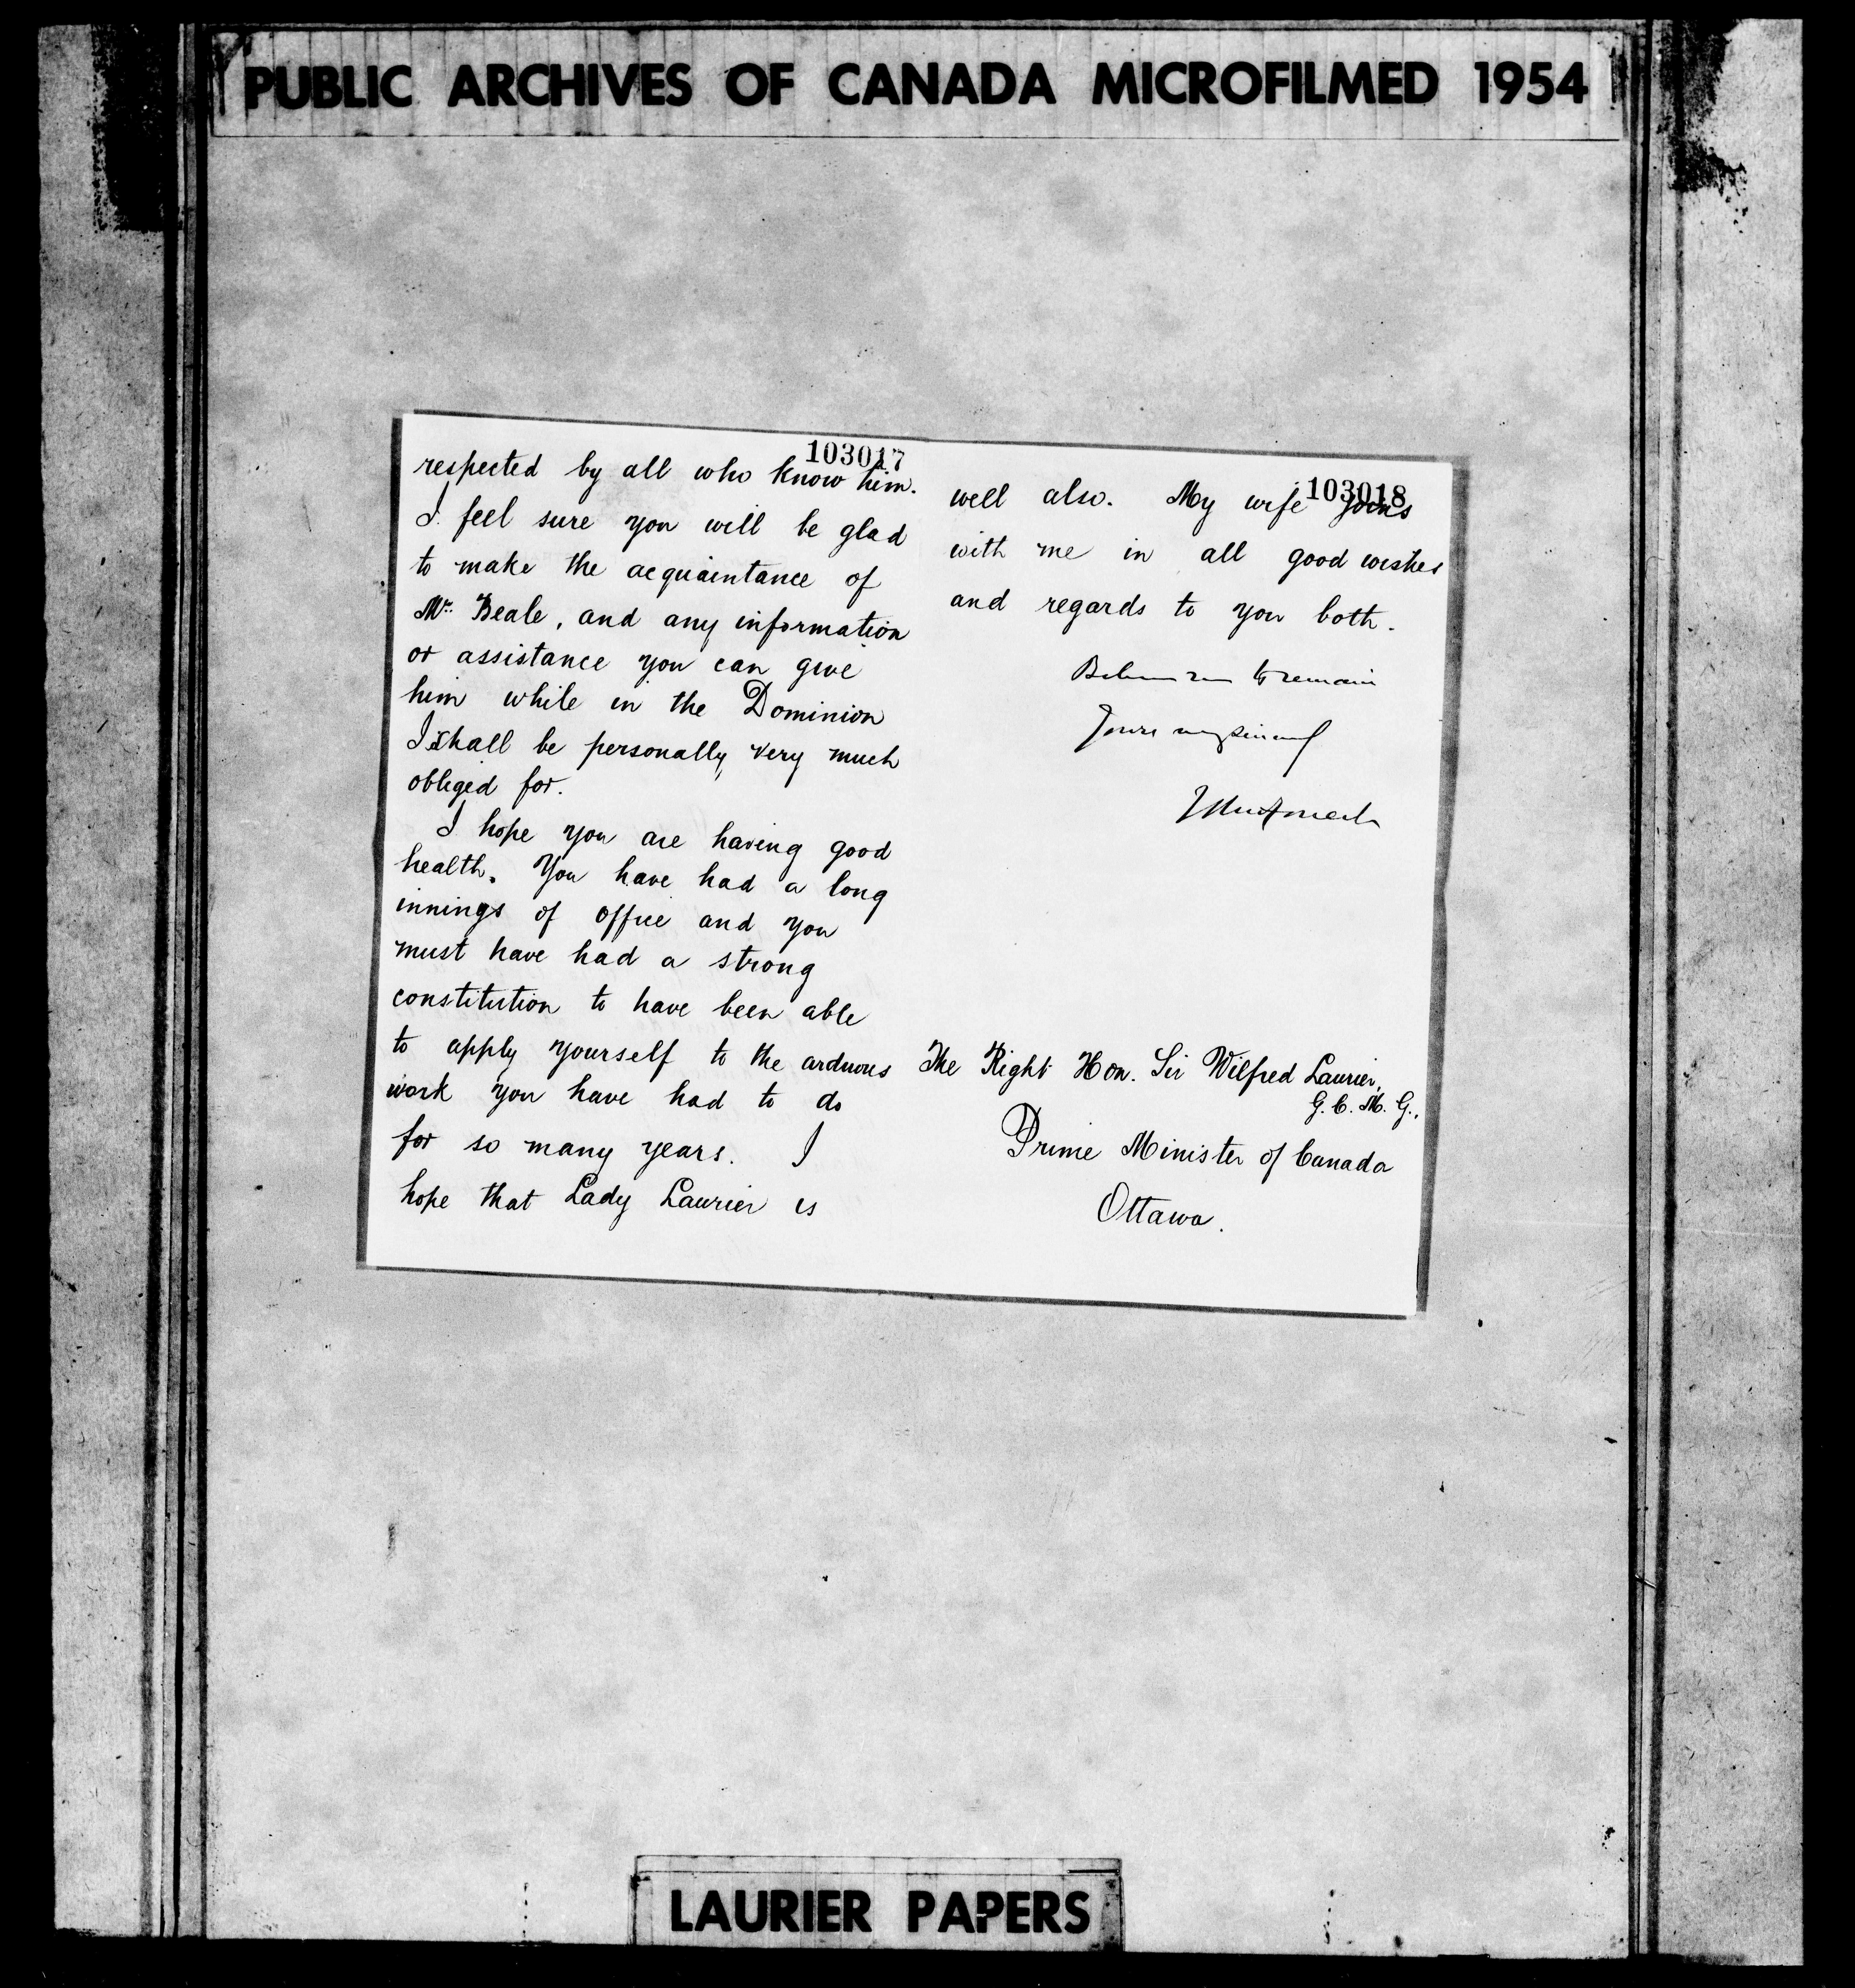 PUBLIC ARCHIVES OF CANADA MICROFILMED 1954
103017
respected by all who know him.
I feel sure you will be glad
to make the acquaintance of
Mr. Beale, and any information
or assistance you can give
him while in the Dominion
I shall be personally very much
obliged for.
I hope you are having good
health. You have had a long
innings of office and you
must have had a strong
constitution to have been able
to apply yourself to the arduous
work you have had to do
for so many years. I
hope that Lady Laurier is
103018
well also. My wife joins
with me in all good wishes
and regards to you both.
Believe me to remain
Yours very sincerely
The Right Hon. Sir Wilfred Laurier,
G. C. M. G.,
Prime Minister of Canada
Ottawa.
LAURIER PAPERS